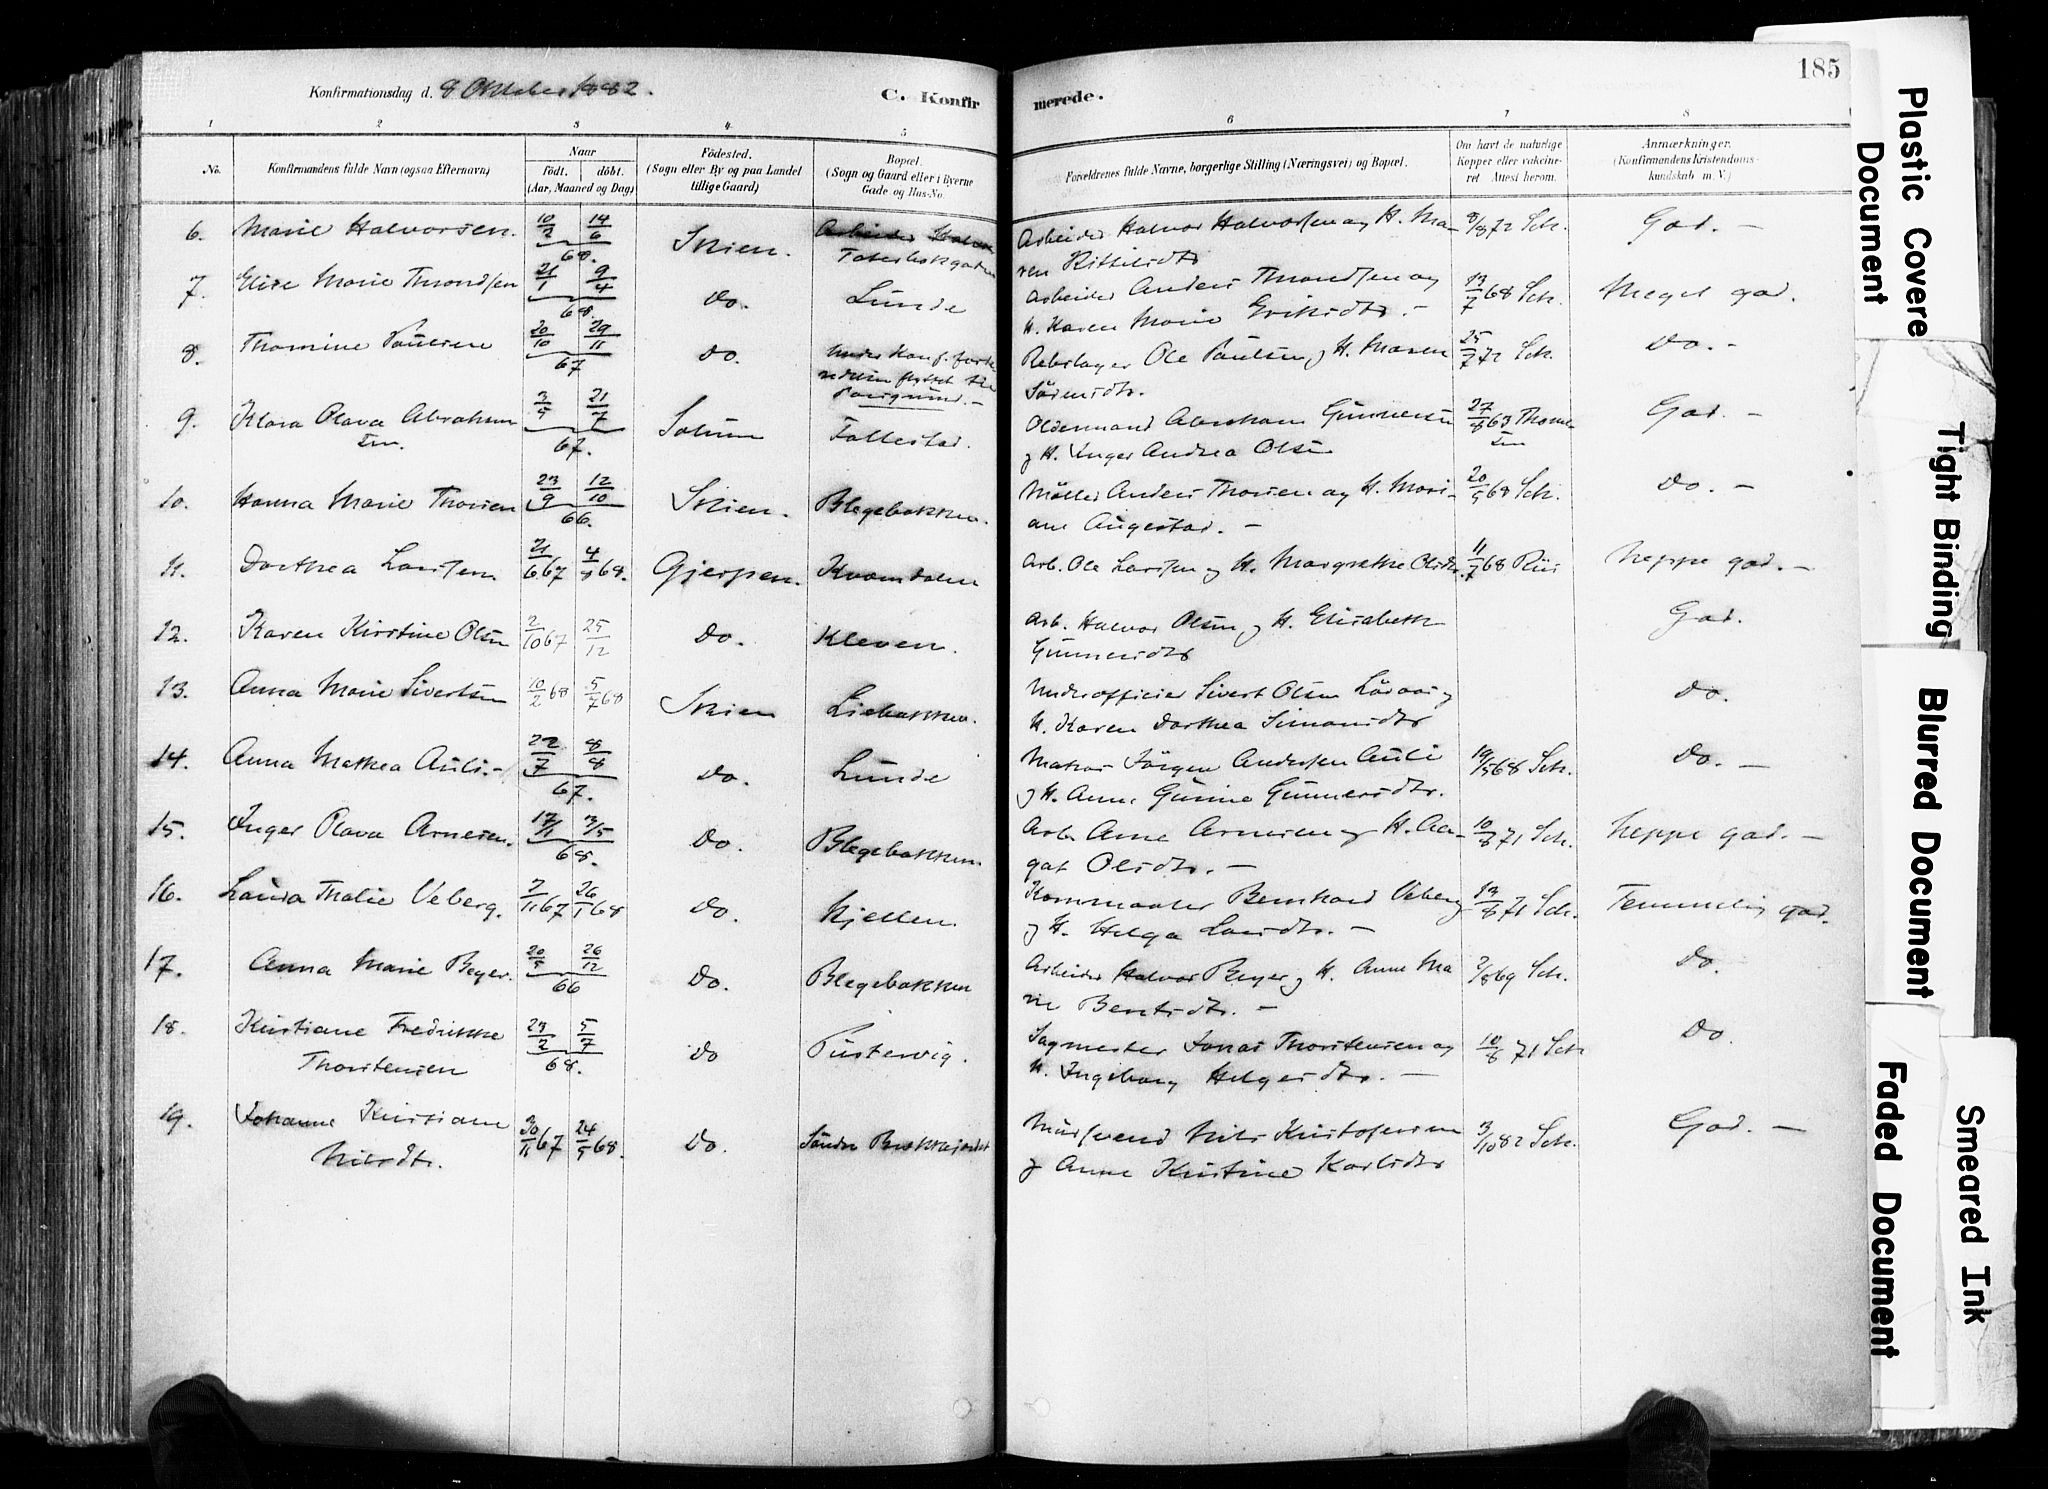 185
Konfirmationsdag d. 8 Oktober 1882.
C. Konfirmerede.
1 2 3 4 5 6 7 8
No.
Konfirmandens fulde Navn (ogsaa Efternavn)
Naar
Födt. döbt.
(Aar, Maaned og Dag)
Födested.
(Sogn eller By og paa Landet
tillige Gaard)
Bopæl.
(Sogn og Gaard eller i Byerne
Gade og Hus-No.
Forældrenes fulde Navne, borgerlige Stilling (Næringsvei) og Bopæl.
Om havt de naturlige
Kopper eller vaksine-
ret Attest herom.
Anmærkninger.
(Konfirmandens Kristendoms-
kundskab m. V.)
6. Marie Halvorsen. 10/2 14/6 68. Skien. Arbeider Halvor Halvorsen og H. Ma- 8/8 72 Sch. God. –
ren Kittilsdtr
7. Elise Marie Throndsen 21/1 9/4 68. Do. Lunde Arbeider Anders Throndsen og 13/7 68 Sch. Meget god.
H. Karen Marie Eriksdtr. –
8. Thomine Paulsen 20/10 29/11 67 Do. Under Konf. forbe
redelsen flyttet til
Porsgrund. – Rebslager Ole Paulsen og H. Maren 25/7 72 Sch. Do. –
Sörensdtr.
9. Klara Olava Abraham
sen. 3/5 21/7 67. Solum Follestad. Oldermand Abraham Gunnersen 27/8 63 Thom
sen God. –
og H. Inger Andrea Olsen
10. Hanna Marie Thorsen 23/9 12/10 66. Skien. Blegebakken. Möller Anders Thorsen og H. Mari- 20/5 68 Sch. Do. –
ane Augestad. –
11. Dorthea Larsen. 21/6 67 4/ 68. Gjerpen. Kvomdalen Arb. Ole Larsen og H. Margrethe Olsdtr. 11/7 68 Riis Neppe god. –
12. Karen Kirstine Olsen 2/10 67 25/12 Do. Kleven. Arb. Halvor Olsen og H. Elisabeth God.
Gunnersdtr
13. Anna Marie Sivertsen 10/2 68 5/7 68 Skien Liebakken. Underofficier Sivert Olsen og Do.
H. Karen Dorthea Simonsdtr
14. Anna Mathea Auli. – 22/7 8/8 67. Do. Lunde Matros Jörgen Andersen Auli 19/5 68 Sch. Do. –
og H. Anne Gurine Gunnersdtr.
15. Inger Olava Arnesen. 17/1 3/5 68. Do. Blegebakken. Arb. Arne Arnesen og H. Aa- 10/8 71 Sch. Neppe god. –
got Olsdtr. –
16. Laura Thalie Veberg. 7/11 67 26/1 68 Do. Kjellen. Kornmaaler Bernhard Veberg 13/8 71 Sch. Temmelig god.
og H. Helga Larsdtr. –
17. Anna Marie Beyer. 20/5 26/12 66 Do. Blegebakken Arbeider Halvor Beyer og H. Anne Ma 2/8 69 Sch. Do.
rie Bentsdtr. –
18. Kristiane Fredrikke
Thorstensen 23/2 5/7 68. Do Pustervig. Sagmester Jonas Thorstensen og 10/8 71 Sch Do.
H. Ingeborg Helgesdtr. –
19. Johanne Kristiane
Nilsdtr. 30/11 67 24/5 68. Do. Söndre Brekkejordet Mursvend Nils Kristofersen 3/10 82 Sch. God. –
og Anne Kristine Karlsdtr
Plastic Covere
Document
Tight Binding
Blurred Document
Faded Document
Smeared Ink